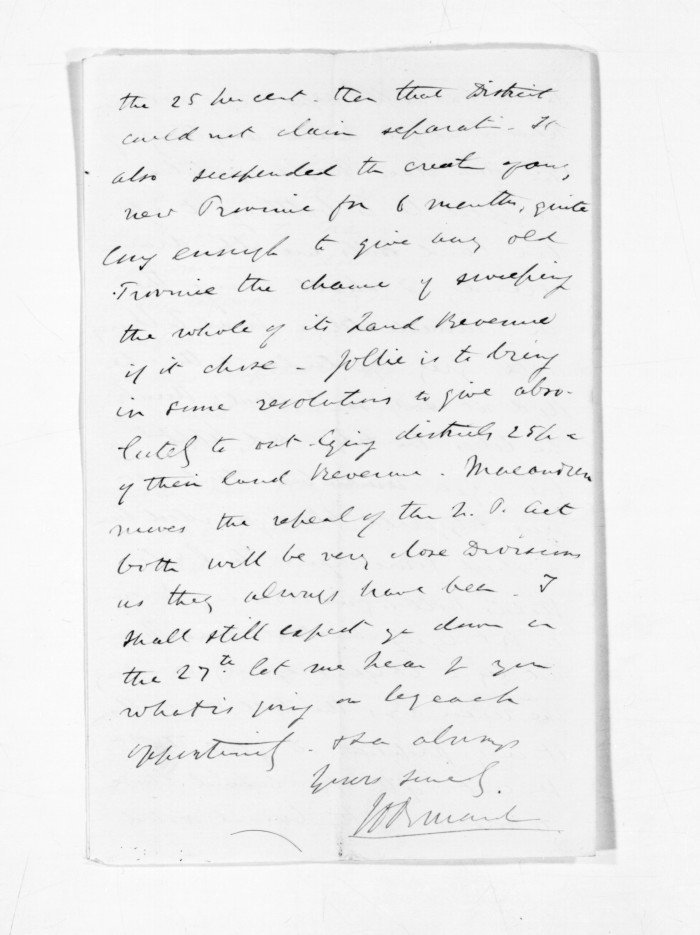 the 25 per cent. then that District
could not claim separati. It
also suspended the creatn of any
new Province for 6 months, quite
long enough to give any old
Province the chance of sweeping
the whole of its Land Revenue
if it chose - Jollie is to bring
in some resolutions to give abso-
-lutely to out-lying districts 25 p c
of their land Revenue. Macandrew
moves the repeal of the N. P. Act
both will be very close Divisions
as they always have been. I
shall still expect yo down on
the 27th let me hear f you
what is going on by each
opportunity. always
Yours sincely.
J D Ormond